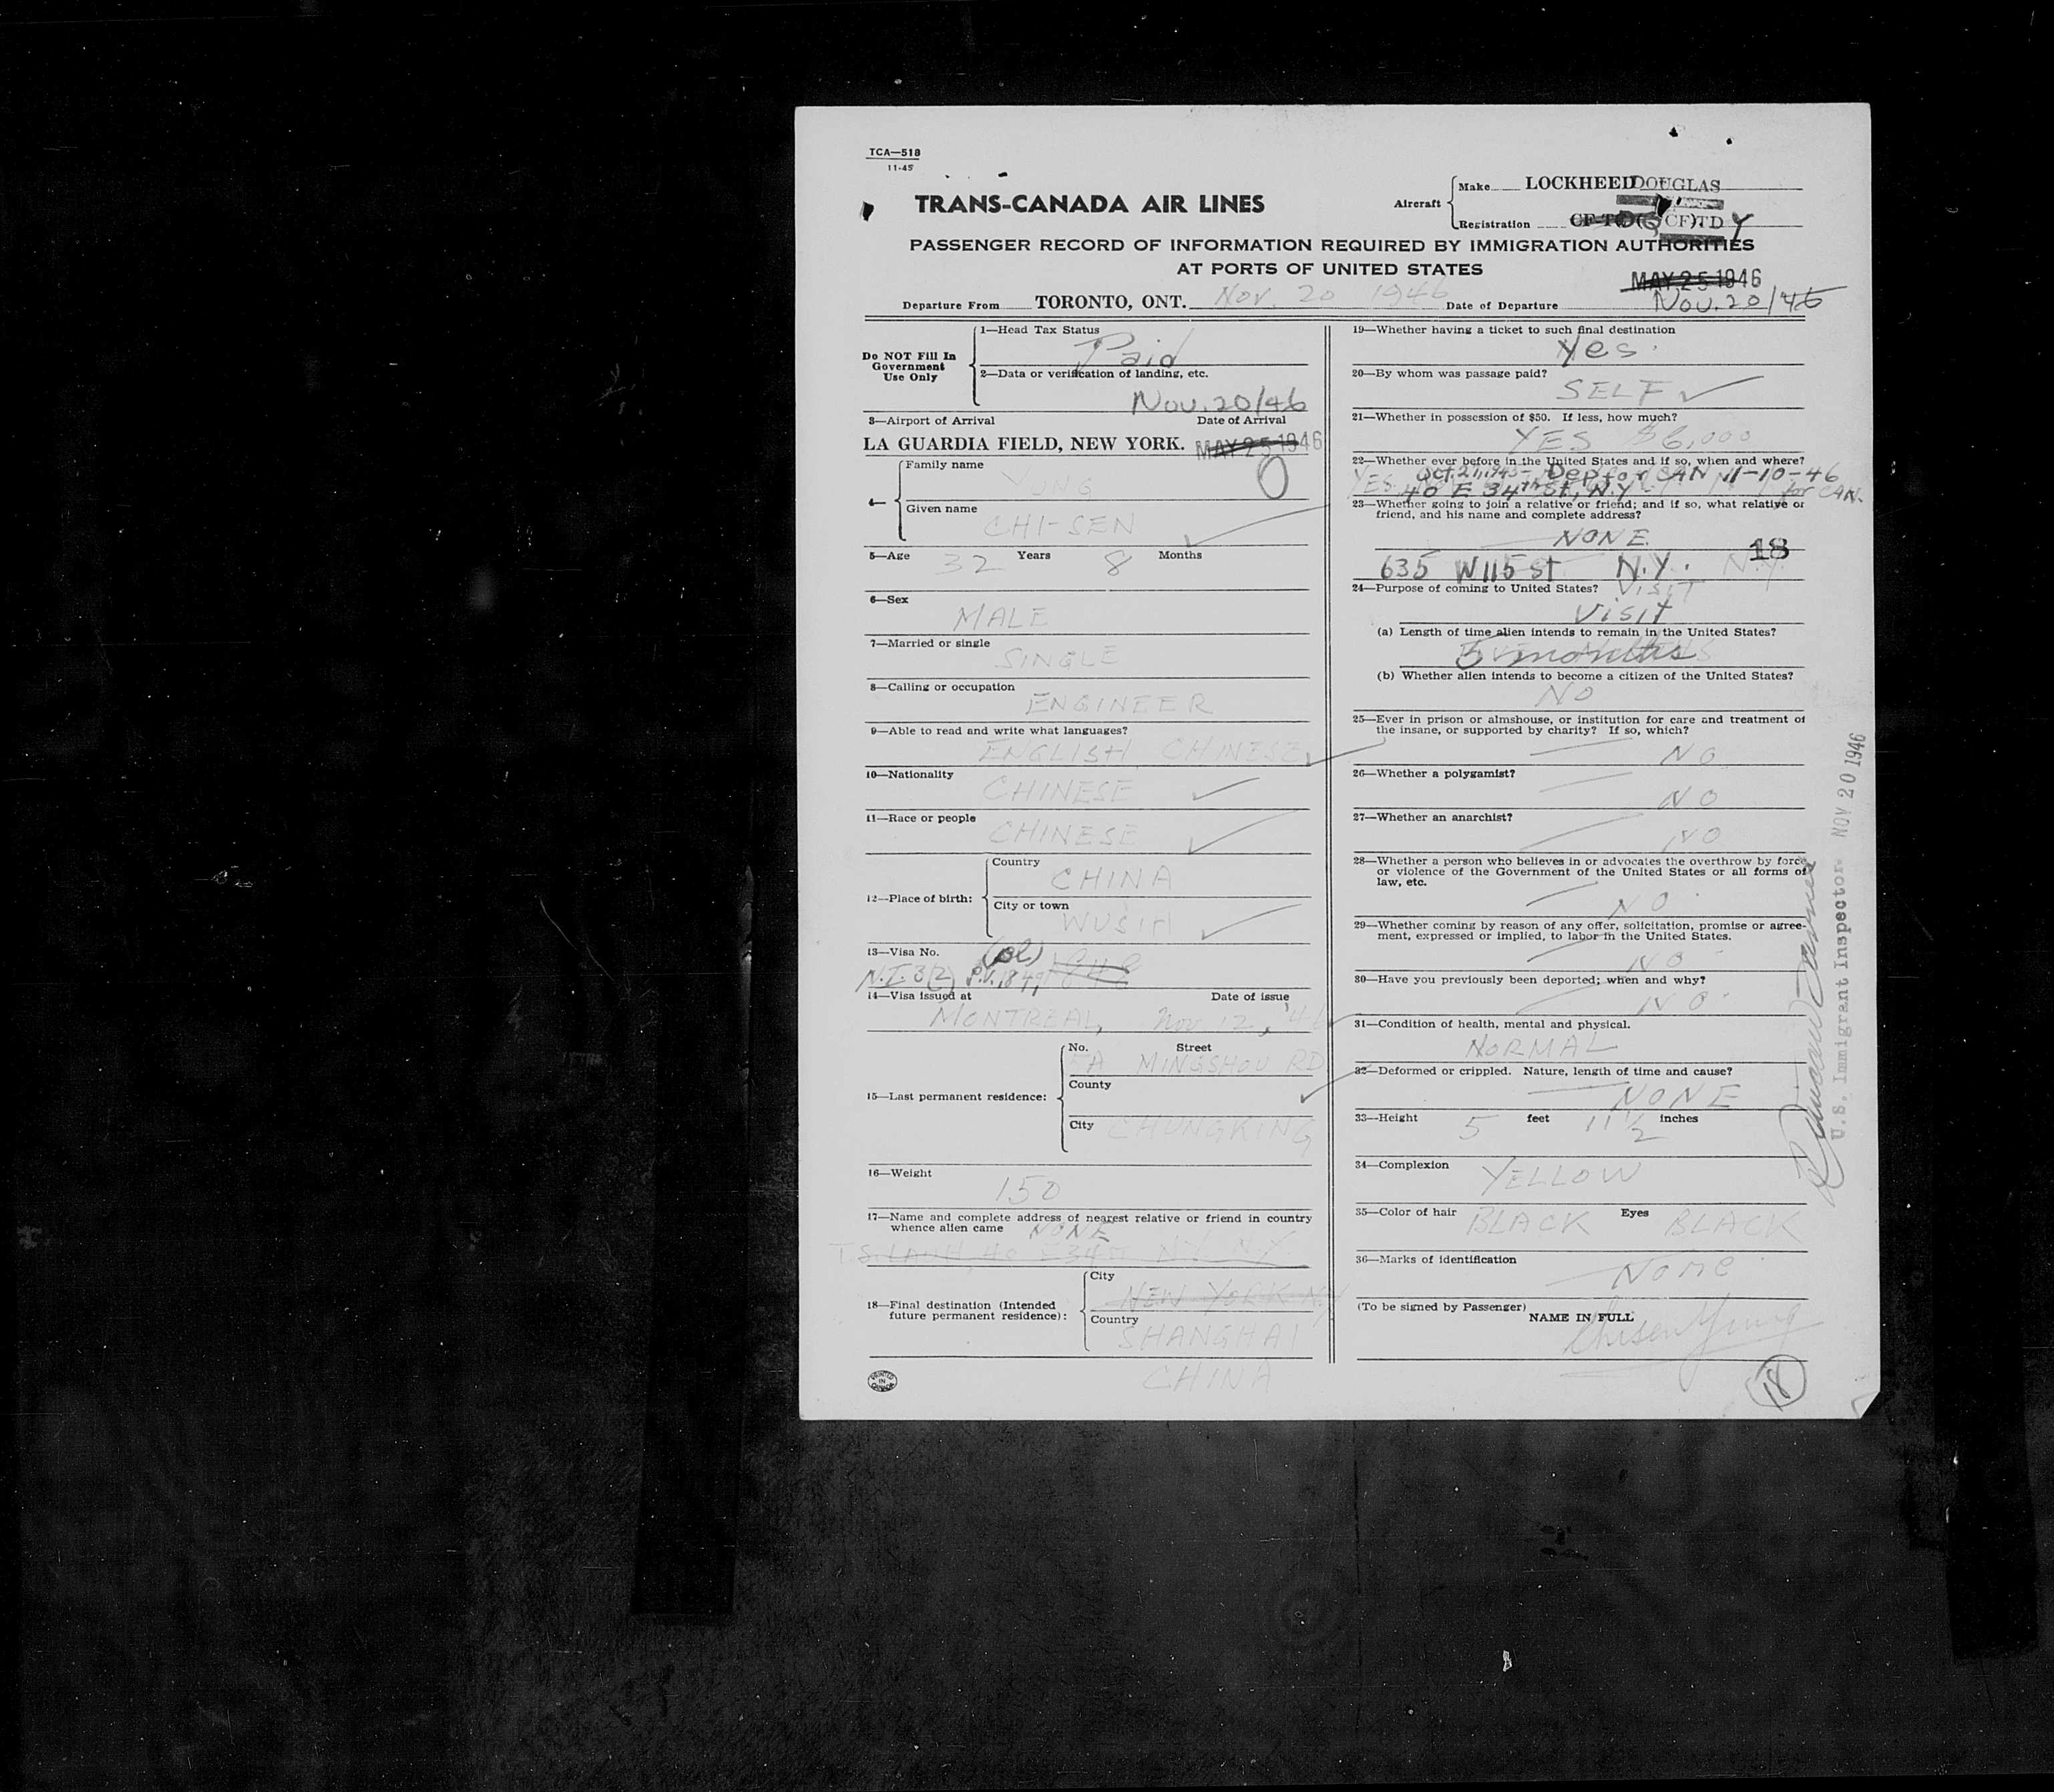 TCA—518
11-45
TRANS-CANADA AIR LINES
Aircraft
Make LOCKHEED DOUGLAS
Registration CF-TD (CF)TD Y
PASSENGER RECORD OF INFORMATION REQUIRED BY IMMIGRATION AUTHORITIES
AT PORTS OF UNITED STATES
MAY 25 1946
Departure From TORONTO, ONT. Nov. 20 1946 Date of Departure Nov. 20/46
Do NOT Fill In
Government
Use Only
1—Head Tax Status
Paid
2—Data or verification of landing, etc.
Nov. 20/46
3—Airport of Arrival Date of Arrival
LA GUARDIA FIELD, NEW YORK. MAY 25 1946
4—
Family name
YUNG
O
Given name
CHI-SEN
5—Age 32 Years 8 Months
6—Sex
MALE
7—Married or single
SINGLE
8—Calling or occupation
ENGINEER
9—Able to read and write what languages?
ENGLISH, CHINESE
10—Nationality
CHINESE
11—Race or people
CHINESE
12—Place of birth:
Country
CHINA
City or town
WUSIH
13—Visa No.
N.I. 3(2) P.V. 1849
14—Visa issued at Date of issue
MONTREAL, Nov 12, '46
15—Last permanent residence:
No. Street
MINGSHOU RD
County
City CHUNGKING
16—Weight
150
17—Name and complete address of nearest relative or friend in country
whence alien came NONE
40 E 34TH N.Y. N.Y.
18—Final destination (Intended
future permanent residence):
City
NEW YORK N.Y.
Country
SHANGHAI
CHINA
PRINTED
IN
CANADA
19—Whether having a ticket to such final destination
Yes.
20—By whom was passage paid?
SELF
21—Whether in possession of $50. If less, how much?
YES $6,000
22—Whether ever before in the United States and if so, when and where?
Oct. 21, 1945 Dep for CAN 11-10-46
YES 40 E 34th St, N.Y. for CAN.
23—Whether going to join a relative or friend; and if so, what relative or
friend, and his name and complete address?
NONE
18
635 W 115 St N.Y. N.Y.
24—Purpose of coming to United States? VISIT
Visit
(a) Length of time alien intends to remain in the United States?
5 months
(b) Whether alien intends to become a citizen of the United States?
NO
25—Ever in prison or almshouse, or institution for care and treatment of
the insane, or supported by charity? If so, which?
NO
26—Whether a polygamist?
NO
27—Whether an anarchist?
NO
28—Whether a person who believes in or advocates the overthrow by force
or violence of the Government of the United States or all forms of
law, etc.
NO
29—Whether coming by reason of any offer, solicitation, promise or agree-
ment, expressed or implied, to labor in the United States.
NO
30—Have you previously been deported; when and why?
NO
31—Condition of health, mental and physical.
NORMAL
32—Deformed or crippled. Nature, length of time and cause?
NONE
33—Height 5 feet 11 1/2 inches
34—Complexion YELLOW
35—Color of hair BLACK Eyes BLACK
36—Marks of identification
None
(To be signed by Passenger)
NAME IN FULL
Chisen Yung
18
U.S. Immigrant Inspector NOV 20 1946